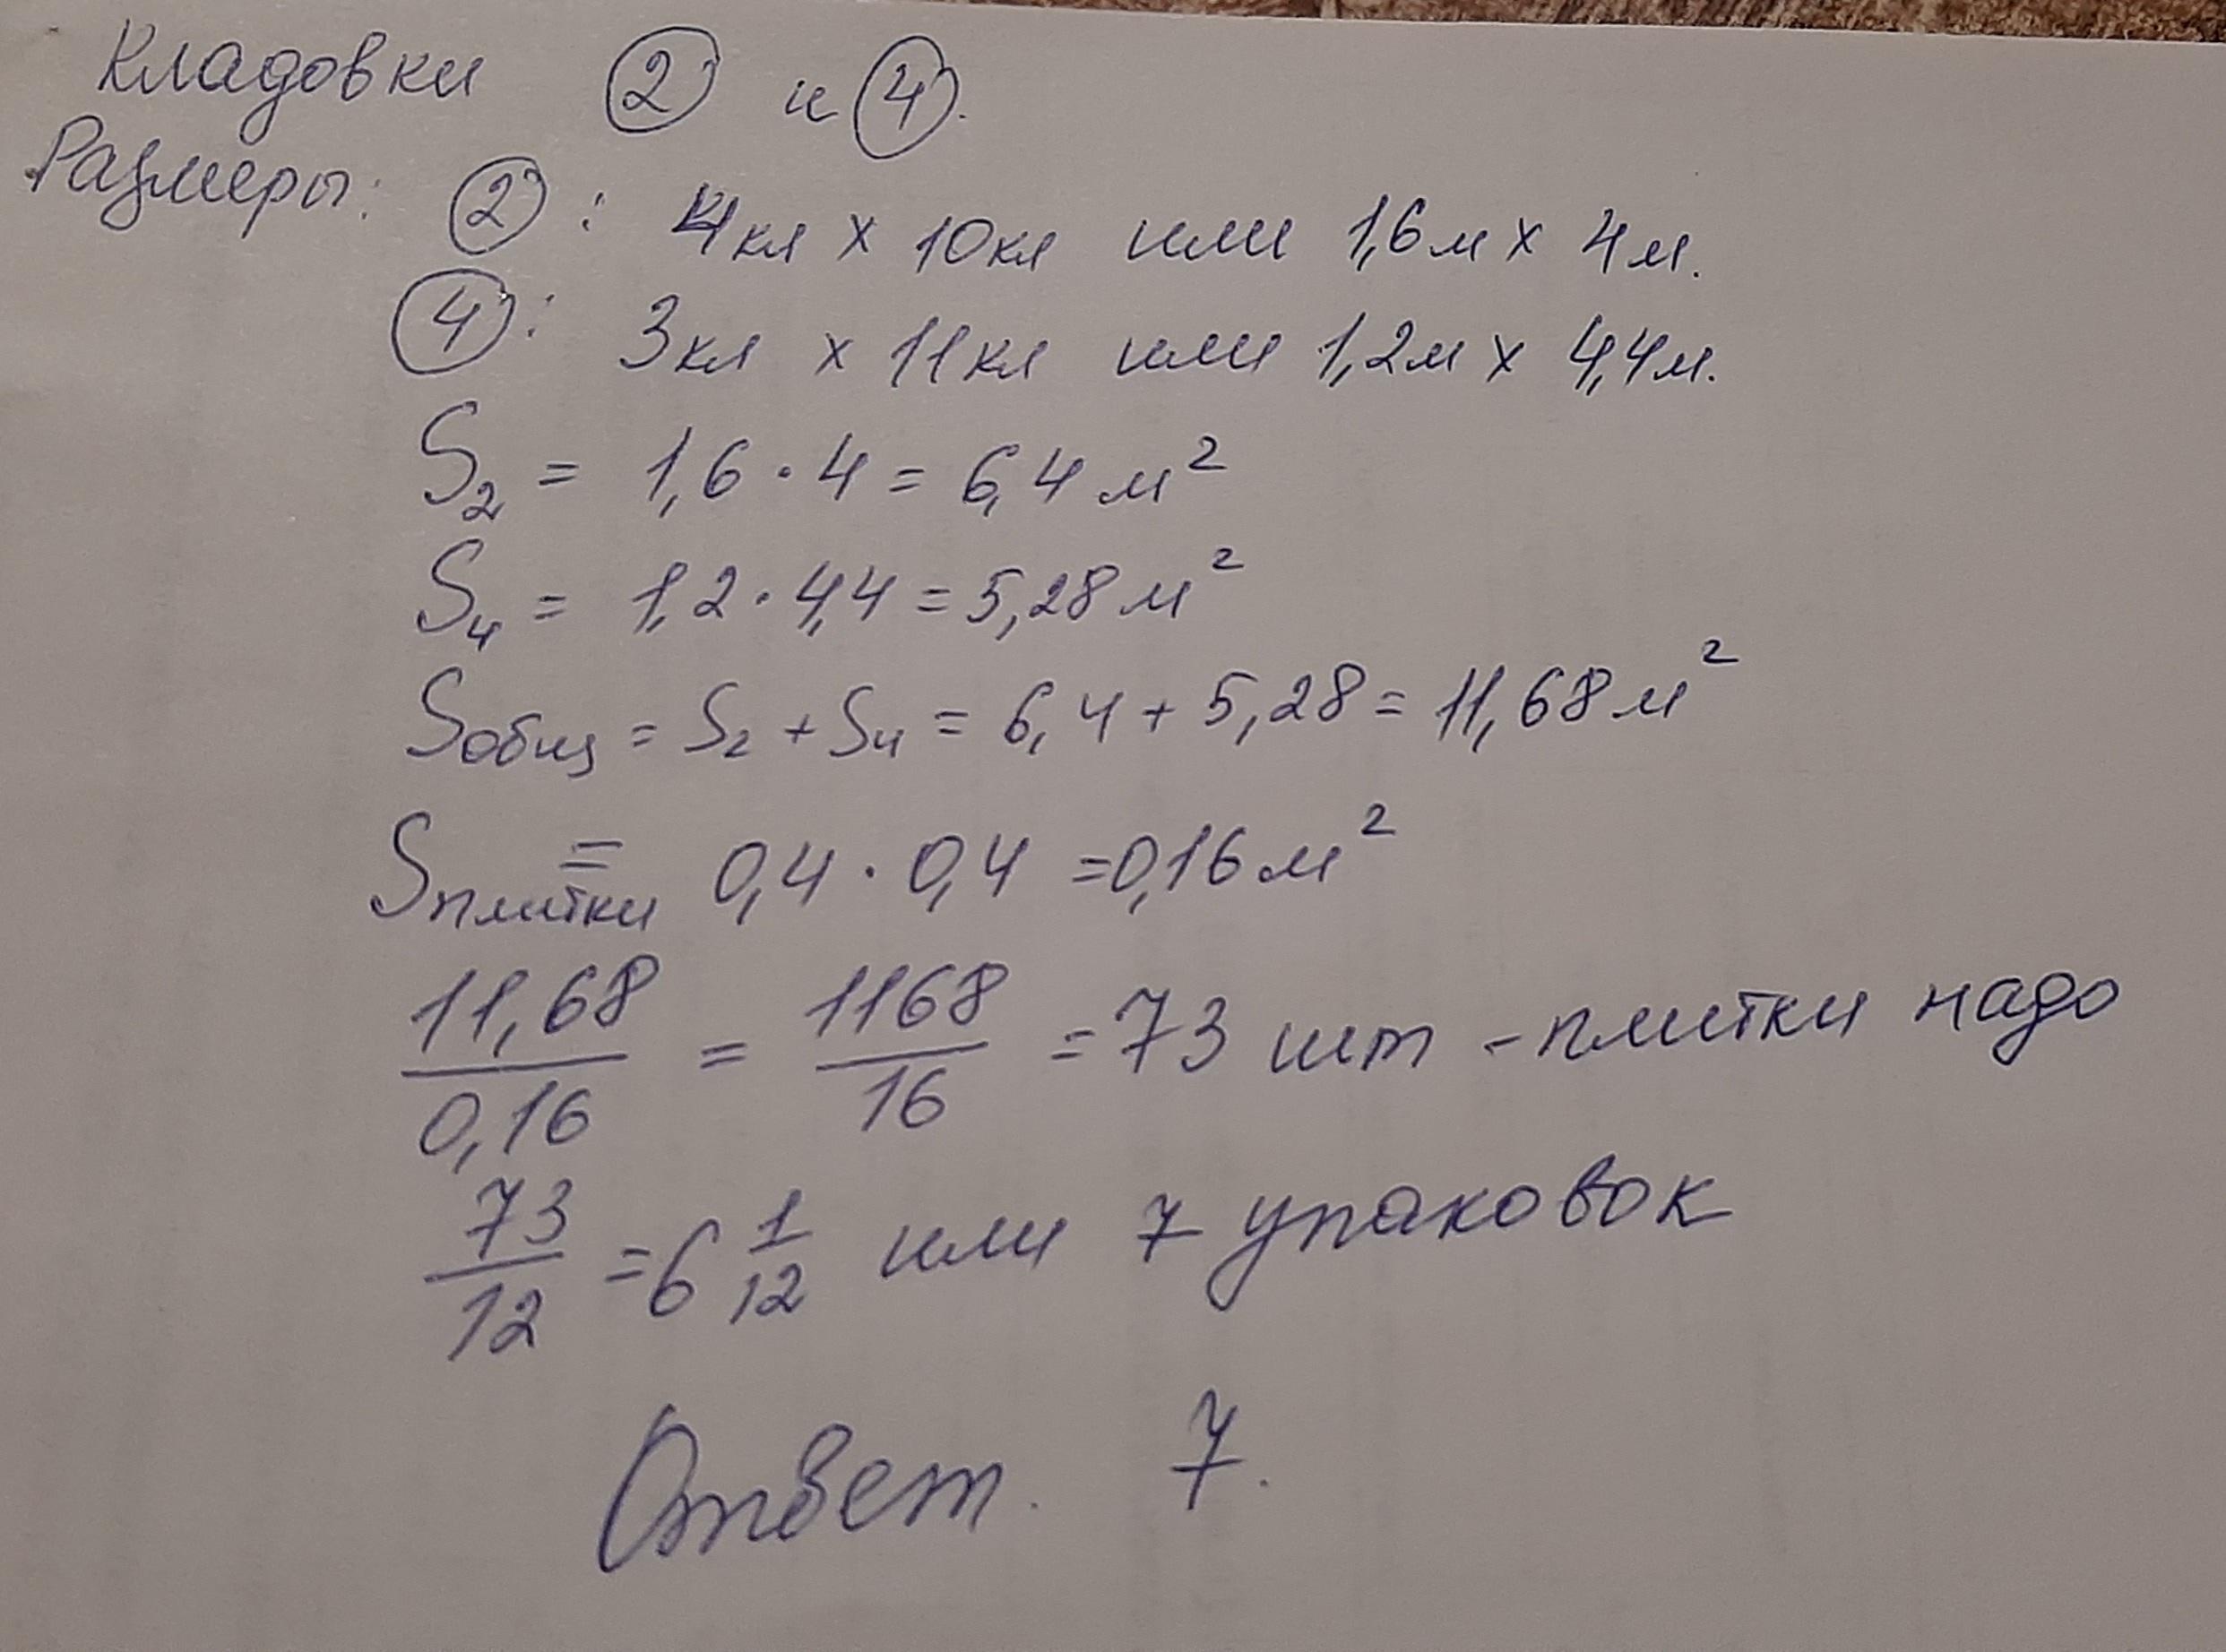 Кладовки ② и ④.
Размеры: ②: 4кл х 10кл или 1,6м х 4м.
④: 3кл х 11кл или 1,2м х 4,4м.
S₂ = 1,6 · 4 = 6,4 м²
S₄ = 1,2 · 4,4 = 5,28 м²
Sобщ = S₂ + S₄ = 6,4 + 5,28 = 11,68 м²
Sплитки = 0,4 · 0,4 = 0,16 м²
11,68/0,16 = 1168/16 = 73 шт - плитки надо
73/12 = 6 1/12 или 7 упаковок
Ответ. 7.